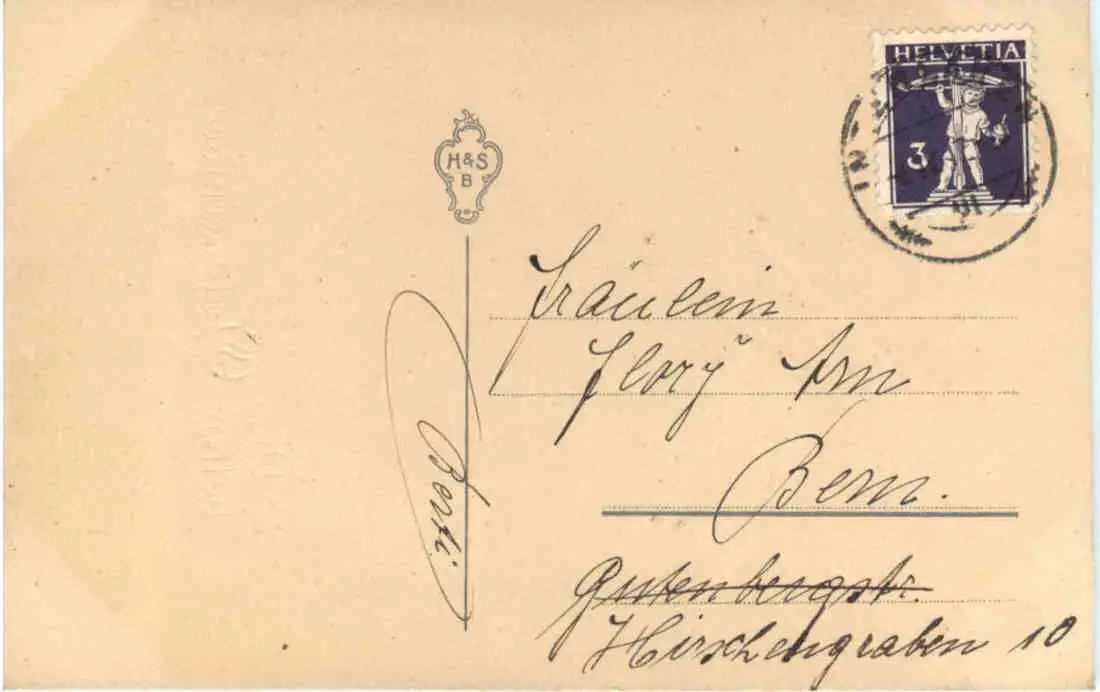 HELVETIA
3
H&S
B
Fräulein
Flory Arn
Bern.
Gutenbergstr.
Hirschengraben 10
Berti